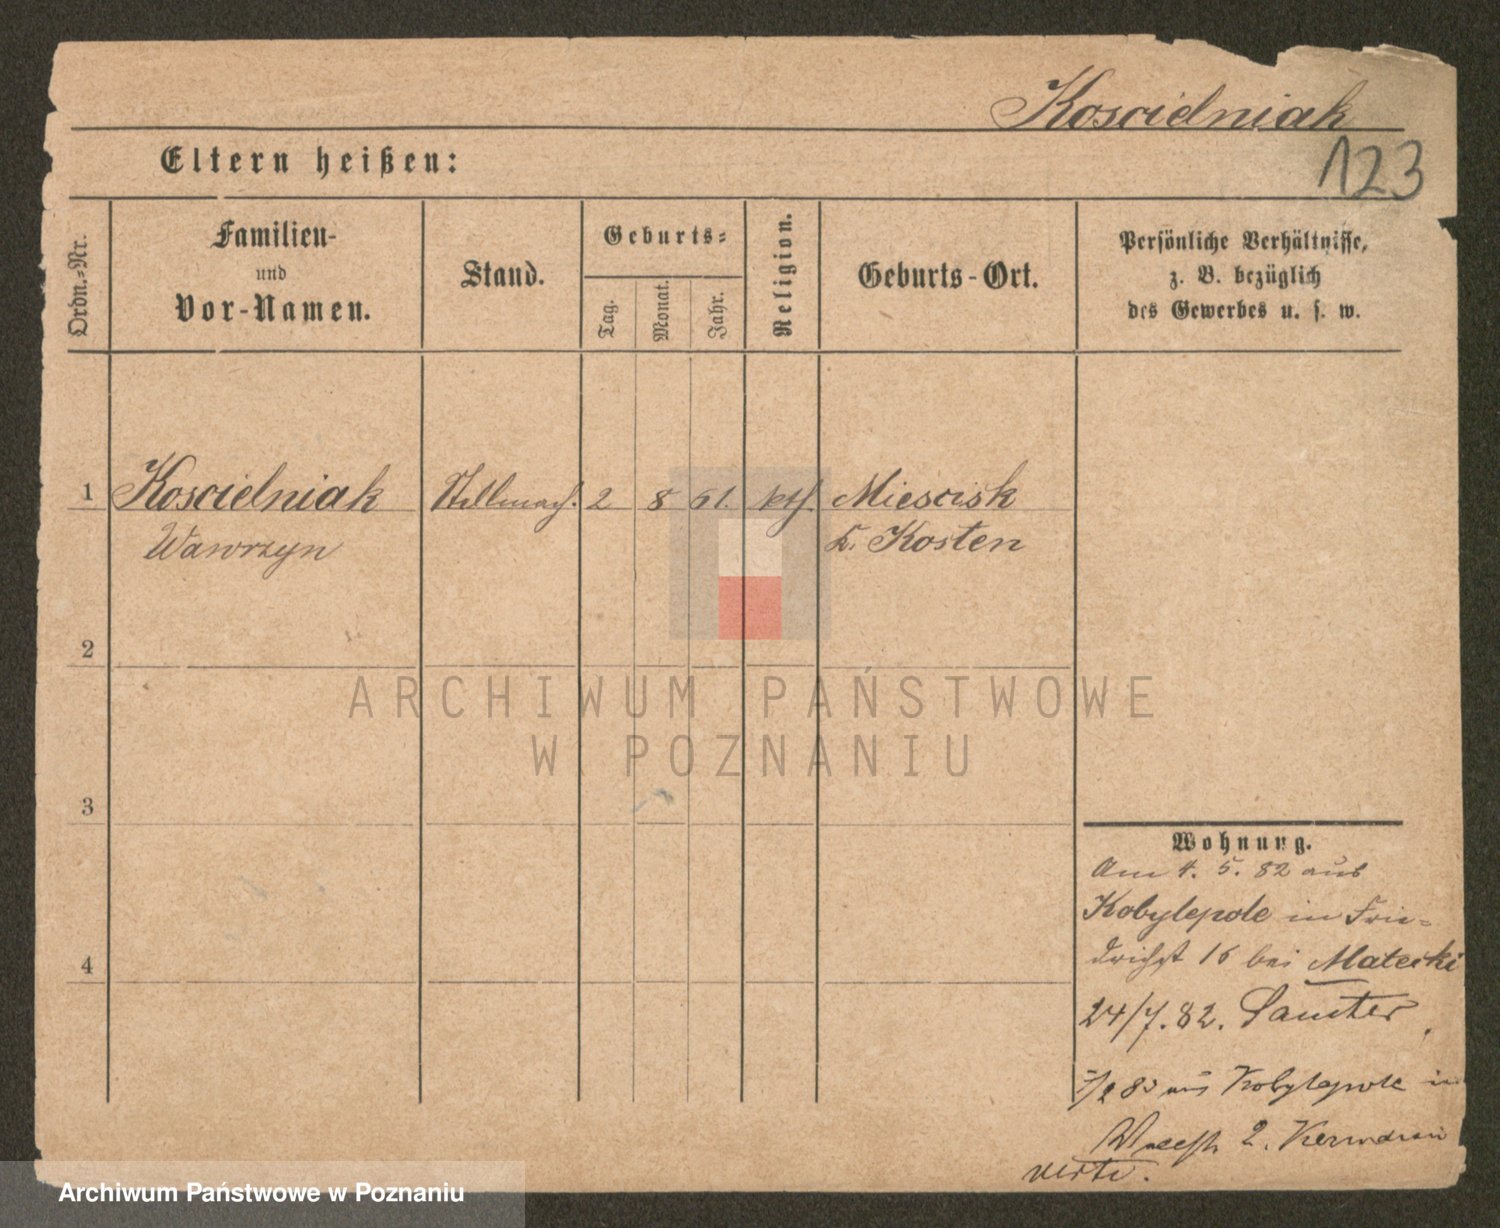 Koscielniak
123
Eltern heißen:
Ordn.=Nr.
Familien-
und
Vor-Namen.
Stand.
Geburts=
Tag.
Monat.
Jahr.
Religion.
Geburts-Ort.
Persönliche Verhältnisse,
z. B. bezüglich
des Gewerbes u. s. w.
1
Koscielniak
Wawrzyn
Stellmach.
2
8
61.
kth.
Miescisk
K. Kosten
2
ARCHIWUM PAŃSTWOWE
W POZNANIU
3
Wohnung.
Am 4. 5. 82 aus
Kobylepole in Frie=
drichst 16 bei Matecki
24/7. 82. Samter
aus Kobylepole in
2.
verte.
4
Archiwum Państwowe w Poznaniu